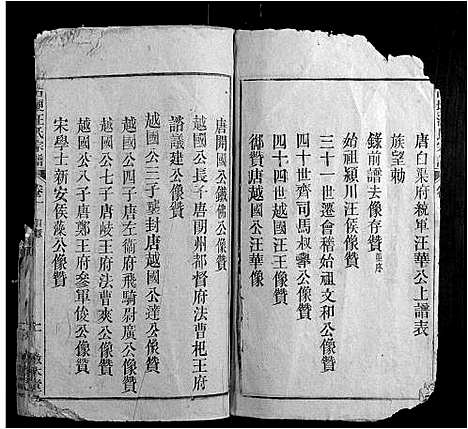 唐白渠府統軍汪華公上譜表
族望勅
錄前譜去像存贊
始祖潁川汪侯像贊
三十一世遷會稽始祖文和公像贊
四十世齊司馬叔舉公像贊
四十四世唐越國公汪華像贊
御贊唐越國公汪華像
唐開國公鐵佛公像贊
越國公長子唐朗州都督府法曹杞王府
諮議建公像贊
越國公三子蓳封唐越國公達公像贊
越國公七子唐左衞府飛騎尉廣公像贊
越國公八子唐岐王府法曹爽公像贊
越國公八子唐鄭王府參軍俊公像贊
宋學士新安侯藻公像贊
汪氏宗譜
卷一